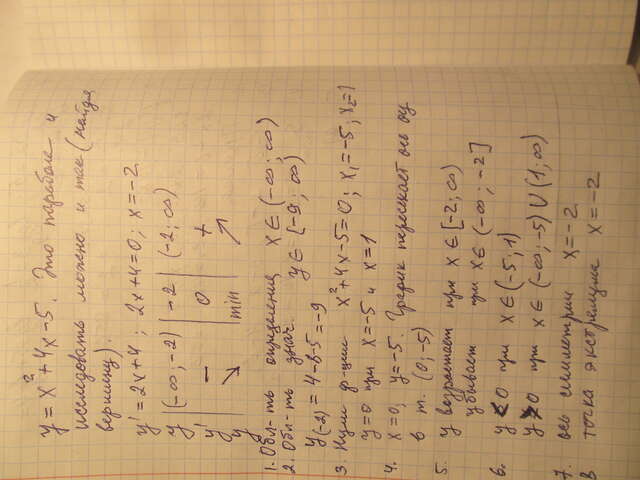 y = x² + 4x - 5. Это парабола и
исследовать можно и так (найдя
вершину).
y' = 2x + 4; 2x + 4 = 0; x = -2
(-∞; -2) | -2 | (-2; ∞)
y' | - | 0 | +
y | ↘ | min | ↗
1. Обл-ть определения x ∈ (-∞; ∞)
2. Обл-ть знач. y ∈ [-9; ∞)
y(-2) = 4 - 8 - 5 = -9
3. Нули ф-ции x² + 4x - 5 = 0; x₁ = -5; x₂ = 1
y = 0 при x = -5 и x = 1
4. x = 0, y = -5. График пересекает ось oy
в т. (0; -5)
5. y возрастает при x ∈ [-2; ∞)
убывает при x ∈ (-∞; -2]
6. y < 0 при x ∈ (-5; 1)
y > 0 при x ∈ (-∞; -5) ∪ (1; ∞)
7. ось симметрии x = -2
8 точка экстремума x = -2